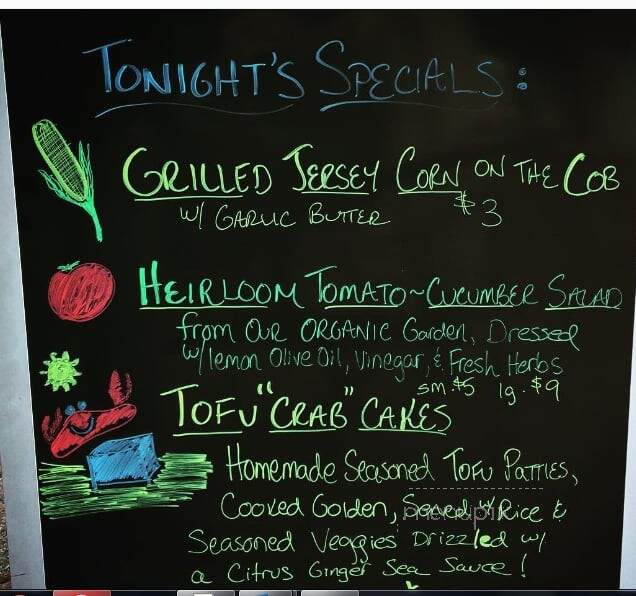 TONIGHT'S SPECIALS:
GRILLED JERSEY CORN ON THE COB
w/ GARLIC BUTTER $3
HEIRLOOM TOMATO~CUCUMBER SALAD
from Our ORGANIC Garden, Dressed
w/lemon Olive Oil, Vinegar, & Fresh Herbs
sm. $5 lg. $9
TOFU "CRAB" CAKES
Homemade Seasoned TOFU PATTIES,
Cooked Golden, Served w/ Rice &
menupix
Seasoned Veggies Drizzled w/
a Citrus Ginger Sea Sauce!